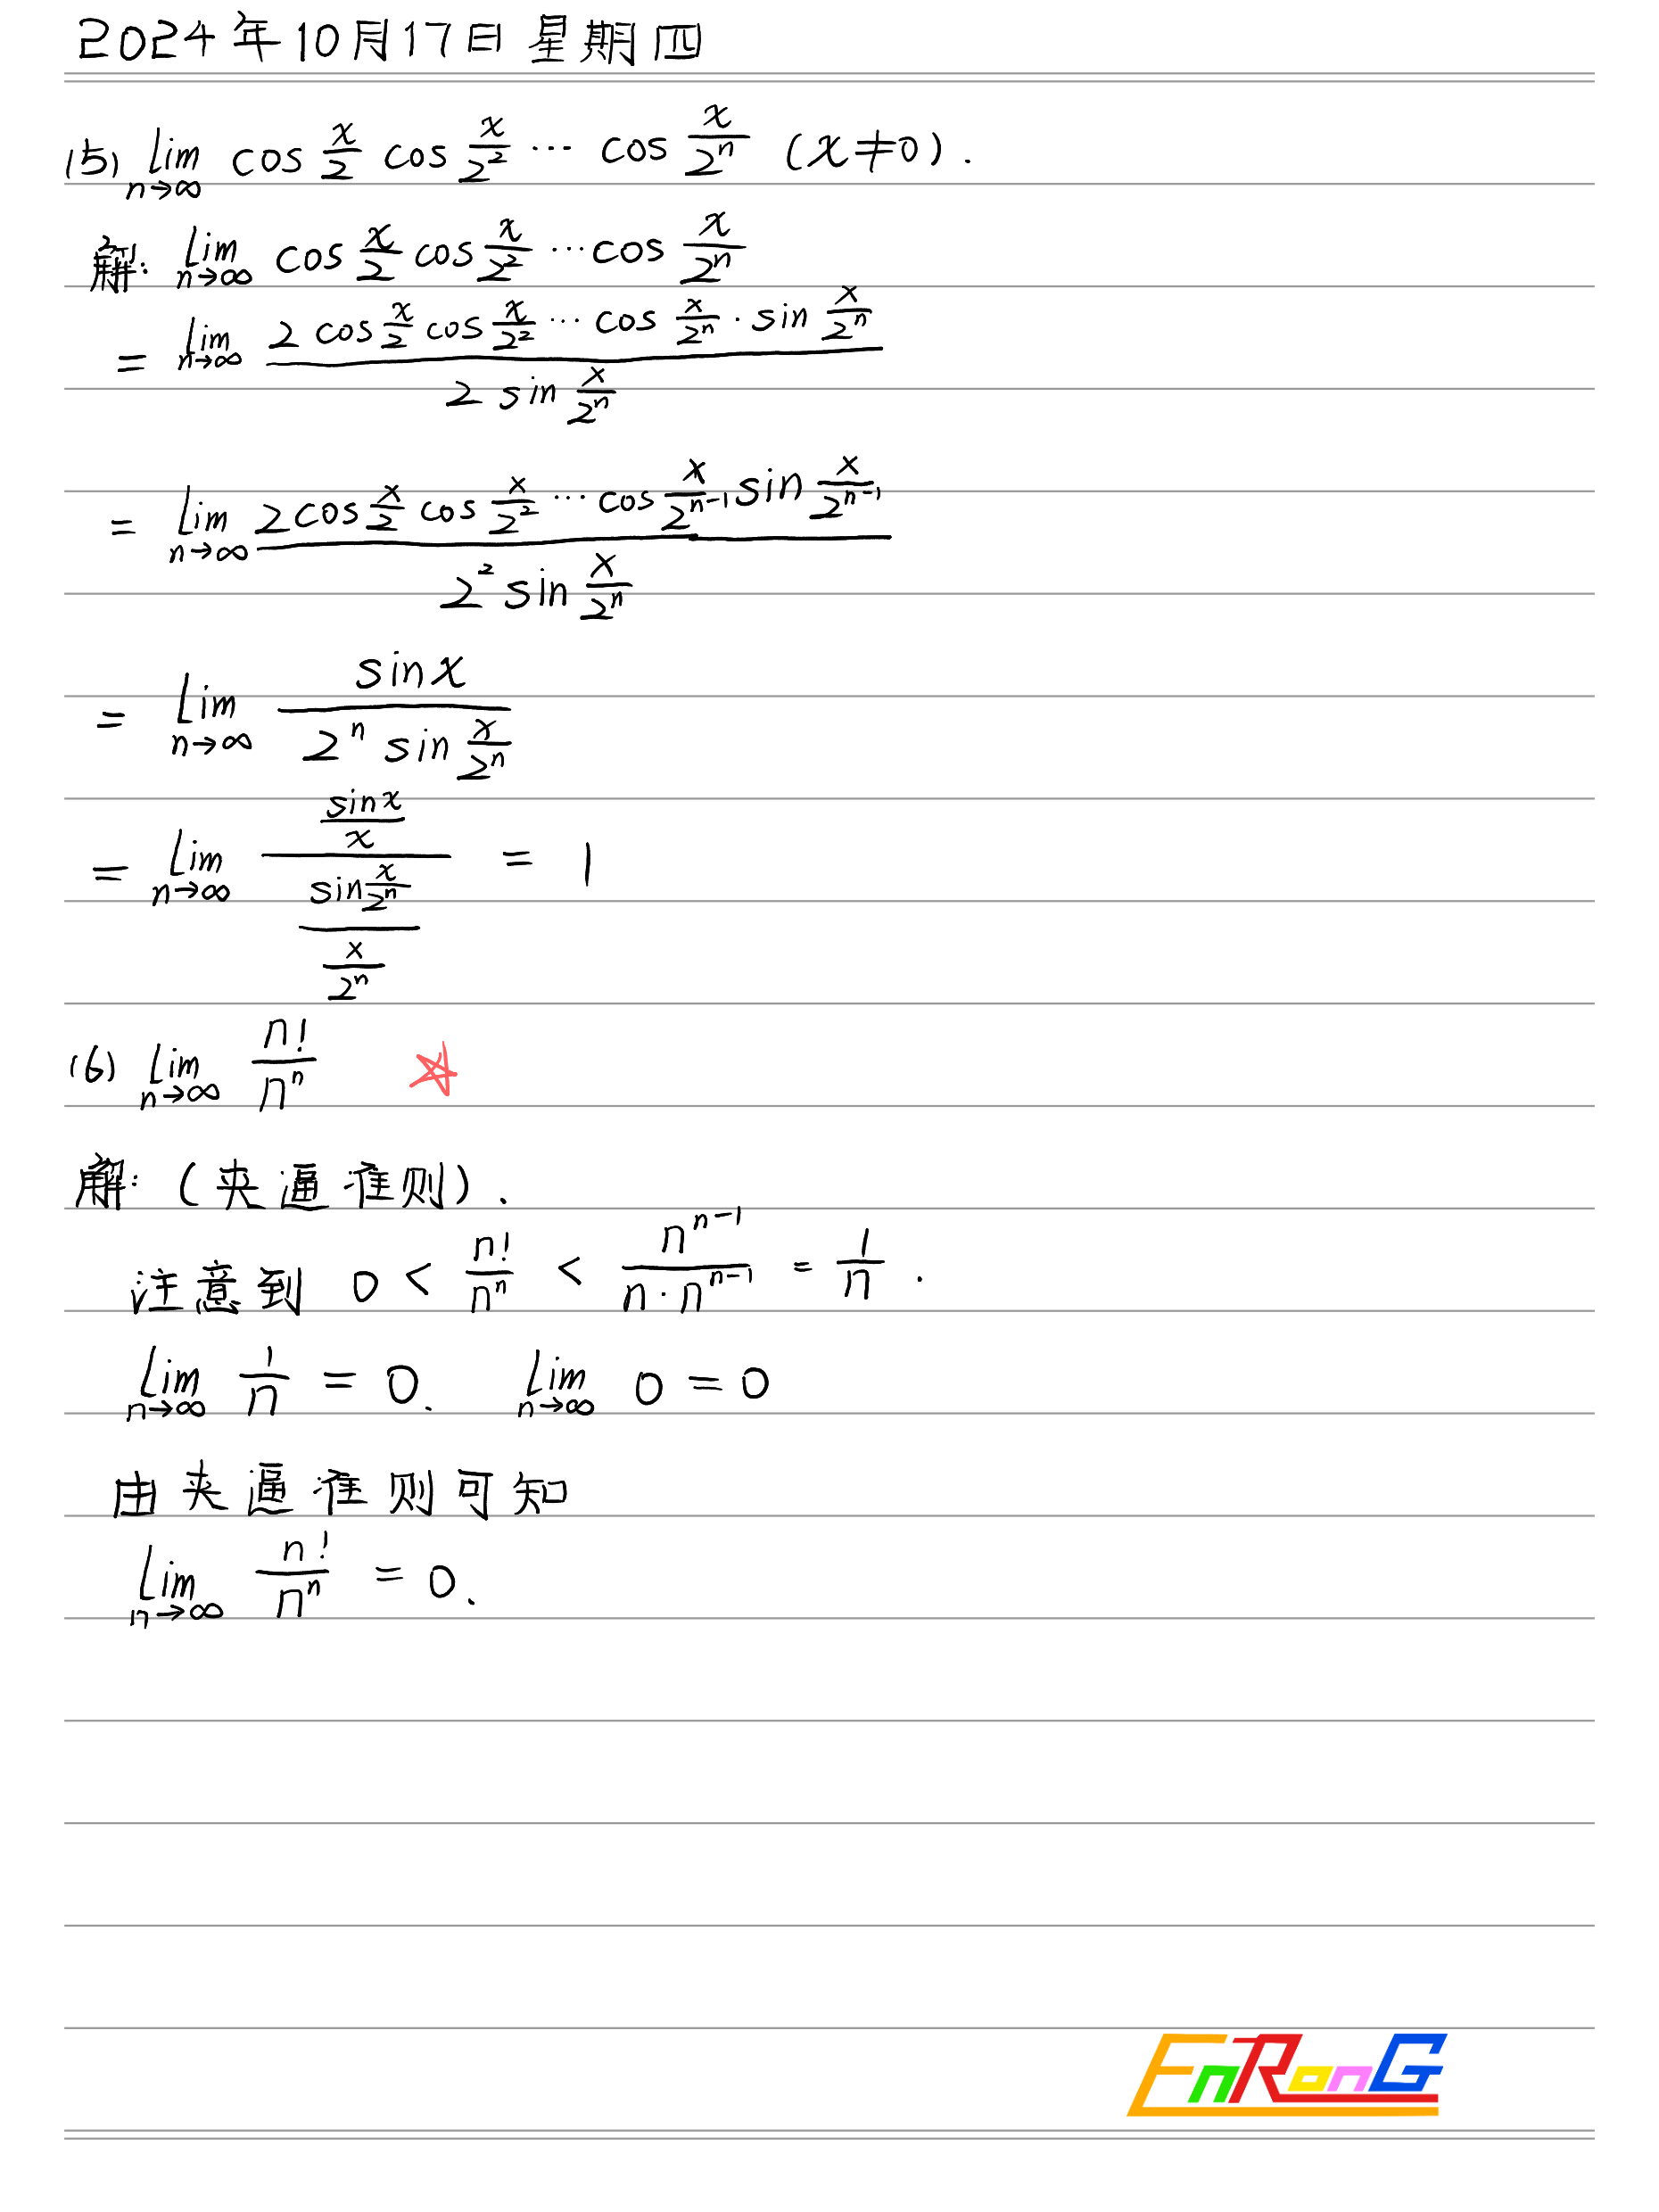 2024年10月17日星期四
(5) lim_{n→∞} cos x/2 cos x/2² ⋯ cos x/2ⁿ (x≠0).
解: lim_{n→∞} cos x/2 cos x/2² ⋯ cos x/2ⁿ
= lim_{n→∞} (2 cos x/2 cos x/2² ⋯ cos x/2ⁿ · sin x/2ⁿ) / (2 sin x/2ⁿ)
= lim_{n→∞} (2 cos x/2 cos x/2² ⋯ cos x/2ⁿ⁻¹ sin x/2ⁿ⁻¹) / (2² sin x/2ⁿ)
= lim_{n→∞} sin x / (2ⁿ sin x/2ⁿ)
= lim_{n→∞} (sin x / x) / ((sin x/2ⁿ) / (x/2ⁿ)) = 1
(6) lim_{n→∞} n!/nⁿ
解: (夹逼准则).
注意到 0 < n!/nⁿ < nⁿ⁻¹/(n·nⁿ⁻¹) = 1/n.
lim_{n→∞} 1/n = 0. lim_{n→∞} 0 = 0
由夹逼准则可知
lim_{n→∞} n!/nⁿ = 0.
EnRonG